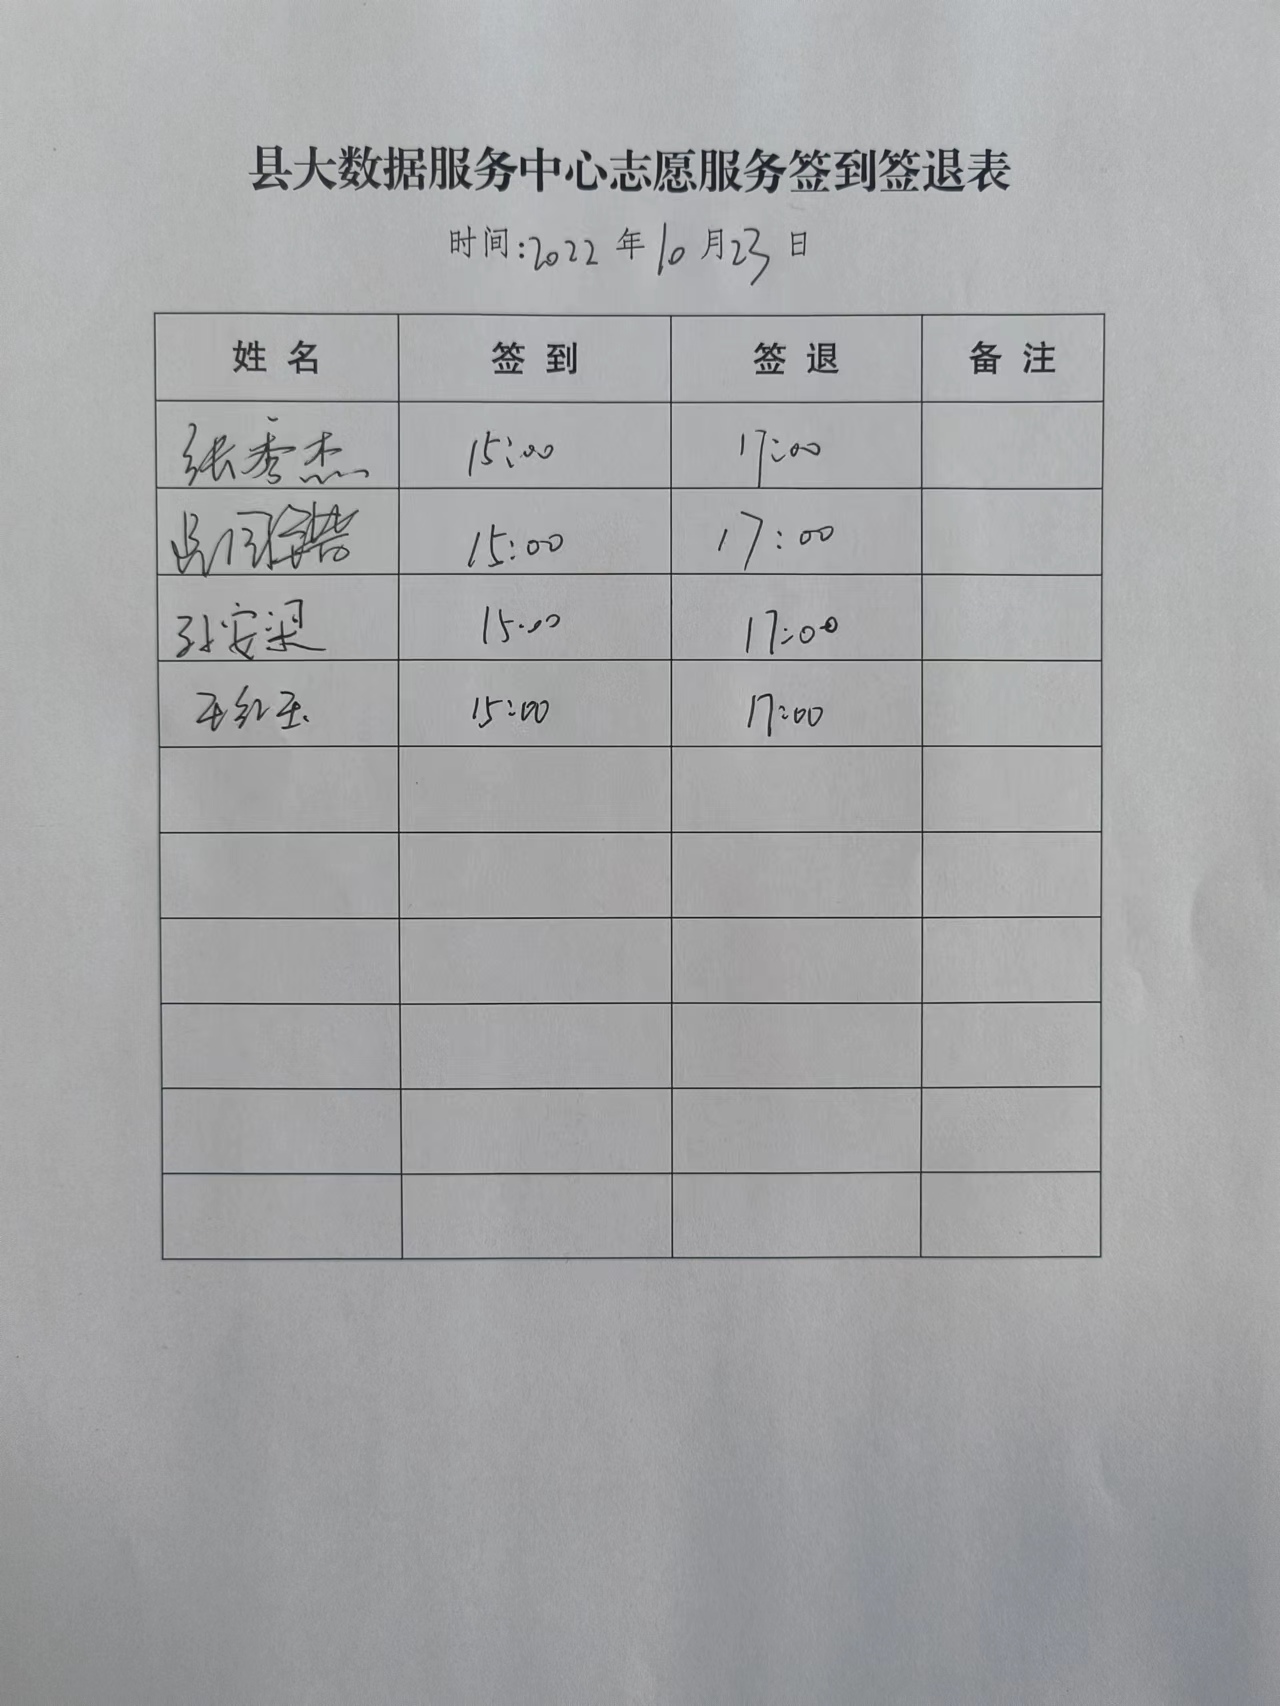 县大数据服务中心志愿服务签到签退表
时间:2022年10月23日
姓名 签到 签退 备注
张秀杰 15:00 17:00
15:00 17:00
孙安梁 15:00 17:00
王红玉 15:00 17:00